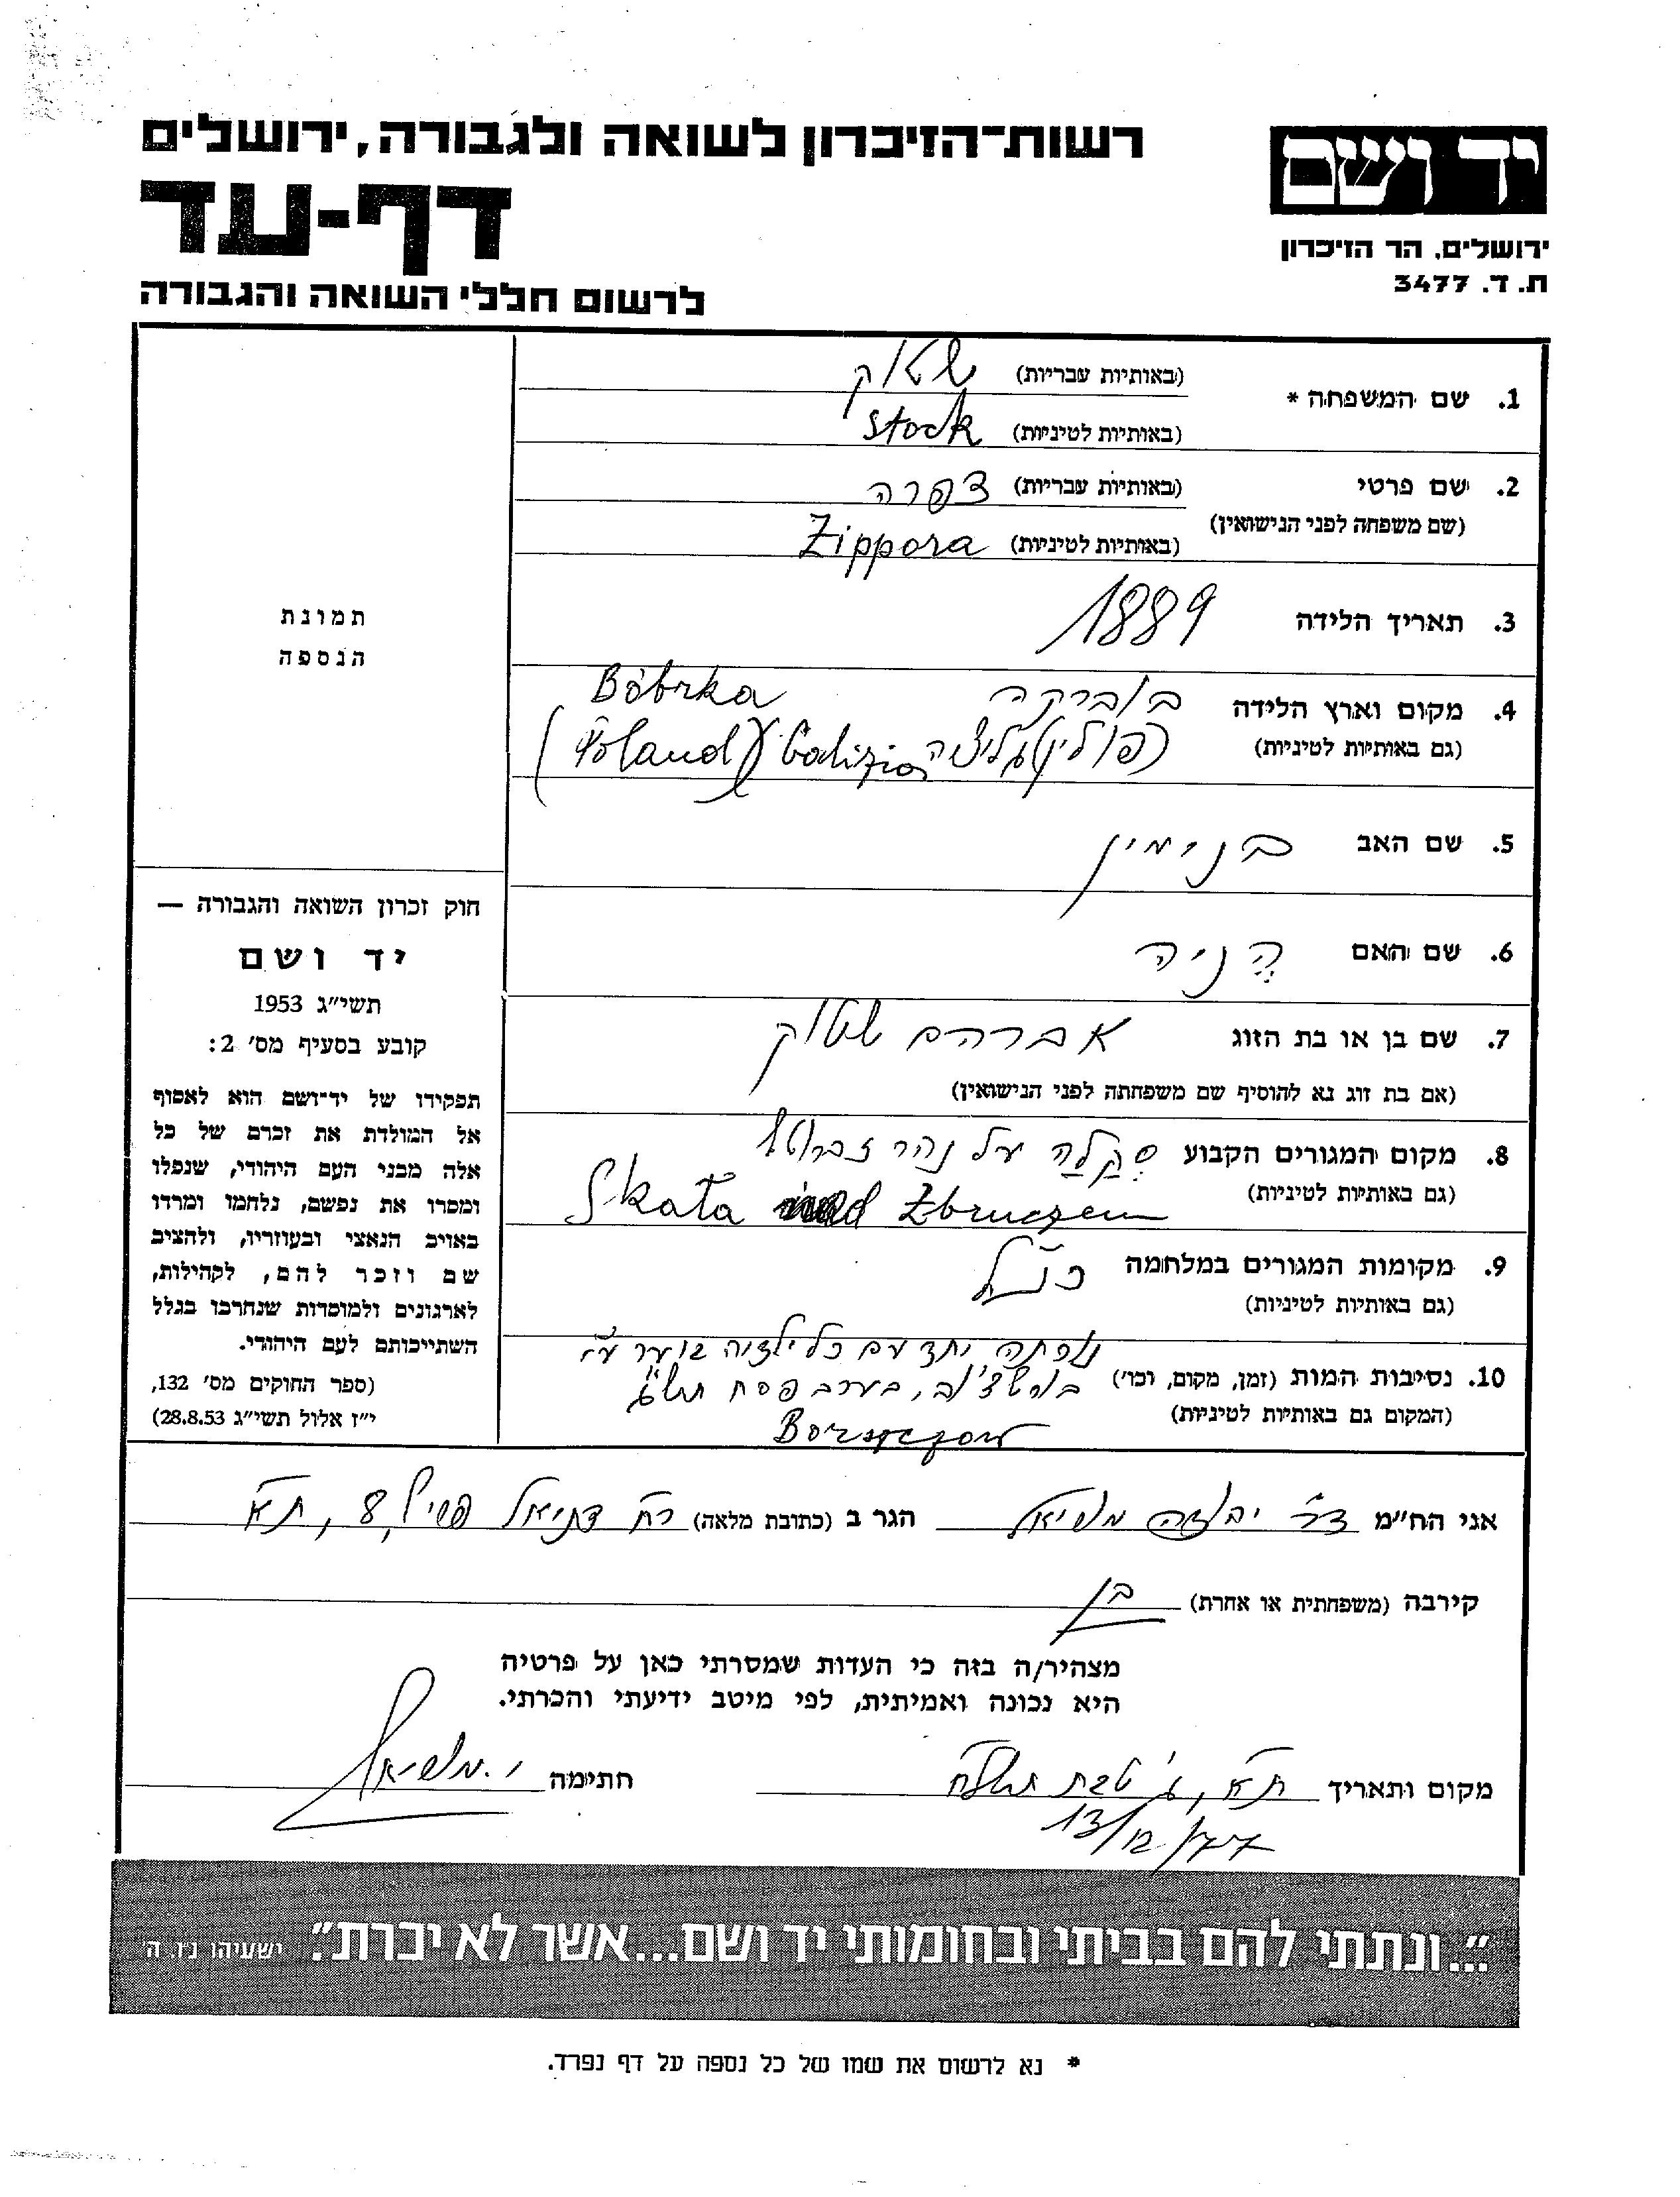 רשות־הזיכרון לשואה ולגבורה, ירושלים
דף-עד
לרשום חללי השואה והגבורה
יד ושם
ירושלים, הר הזיכרון
ת. ד. 3477
1. שם המשפחה * (באותיות עבריות) שטוק
(באותיות לטיניות) Stock
2. שם פרטי (באותיות עבריות) צפרה
(שם משפחה לפני הנישואין)
(באותיות לטיניות) Zippora
3. תאריך הלידה 1889
4. מקום וארץ הלידה בוברקה Bóbrka
(גם באותיות לטיניות) (פולין) גליציה Galizia (Poland)
5. שם האב בנימין
6. שם האם הניה
7. שם בן או בת הזוג אברהם שטוק
(אם בת זוג נא להוסיף שם משפחתה לפני הנישואין)
8. מקום המגורים הקבוע סקלה על נהר זברוטש
(גם באותיות לטיניות) Skała nad Zbruczem
9. מקומות המגורים במלחמה כנ"ל
(גם באותיות לטיניות)
10. נסיבות המות (זמן, מקום, וכו') נספתה יחד עם כל ילדיה
(המקום גם באותיות לטיניות) בורשצ'וב, בערב פסח תש"ג
Borszczow
תמונת
הנספה
חוק זכרון השואה והגבורה —
יד ושם
תשי"ג 1953
קובע בסעיף מס' 2:
תפקידו של יד־ושם הוא לאסוף
אל המולדת את זכרם של כל
אלה מבני העם היהודי, שנפלו
ומסרו את נפשם, נלחמו ומרדו
באויב הנאצי ובעוזריו, ולהציב
שם וזכר להם, לקהילות,
לארגונים ולמוסדות שנחרבו בגלל
השתייכותם לעם היהודי.
(ספר החוקים מס' 132,
י"ז אלול תשי"ג 28.8.53)
אני הח"מ ד"ר משיאל הגר ב (כתובת מלאה) רח' דניאל 8, ת"א
קירבה (משפחתית או אחרת) בן
מצהיר/ה בזה כי העדות שמסרתי כאן על פרטיה
היא נכונה ואמיתית, לפי מיטב ידיעתי והכרתי.
מקום ותאריך ת"א, ג' טבת תשל"ח חתימה י. משיאל
13/12/77
"...ונתתי להם בביתי ובחומותי יד ושם...אשר לא יכרת". ישעיהו נ"ו, ה'
* נא לרשום את שמו של כל נספה על דף נפרד.